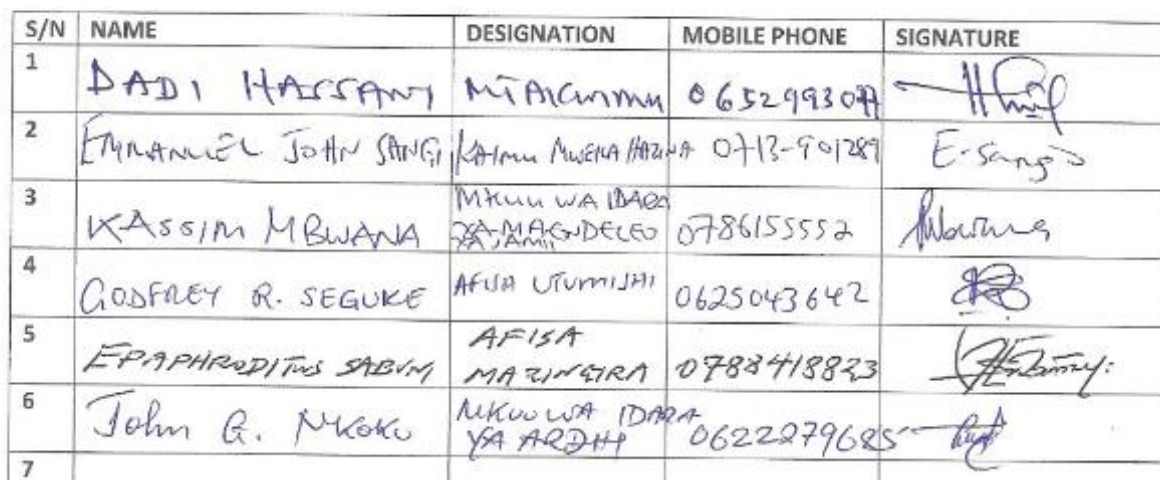 S/N NAME DESIGNATION MOBILE PHONE SIGNATURE
1 DADI HASSANI 0652993077
2 EMMANUEL JOHN SANGI KAIMU MWEKA HAZINA 0713-901289 E-sangi
3 KASSIM MBWANA MKUU WA IDARA
YA MAENDELEO 0786155552
YA JAMII
4 GODFREY R. SEGUKE AFISA UTUMISHI 0625043642
5 EPAPHRODITUS SABUNI AFISA
MAZINGIRA 0788418823
6 John G. Nkoko MKUU WA IDARA
YA ARDHI 0622279685
7